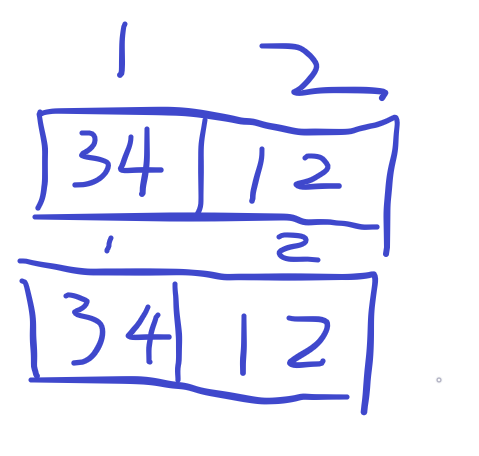 1 2
34 12
1 2
34 12